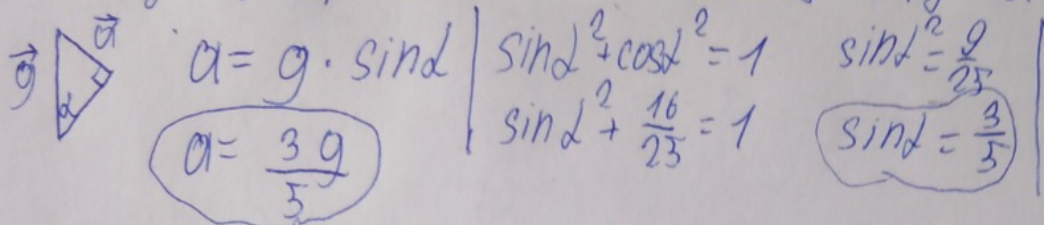 g⃗ a⃗ α
a = g · sinα
a = 3g/5
sinα² + cosα² = 1
sinα² + 16/25 = 1
sinα² = 9/25
sinα = 3/5